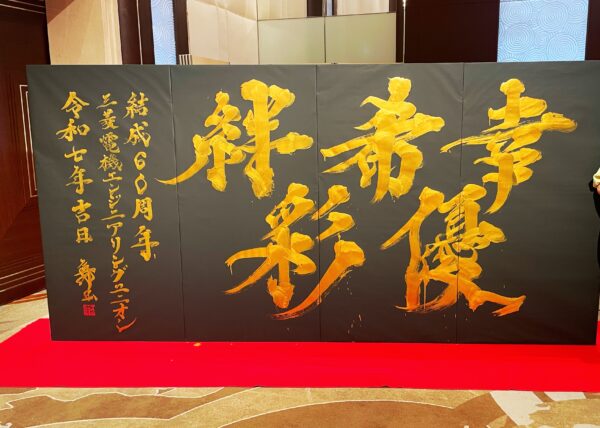 幸
優
希
彩
絆
結成60周年
三菱電機エンジニアリングユニオン
令和七年吉日